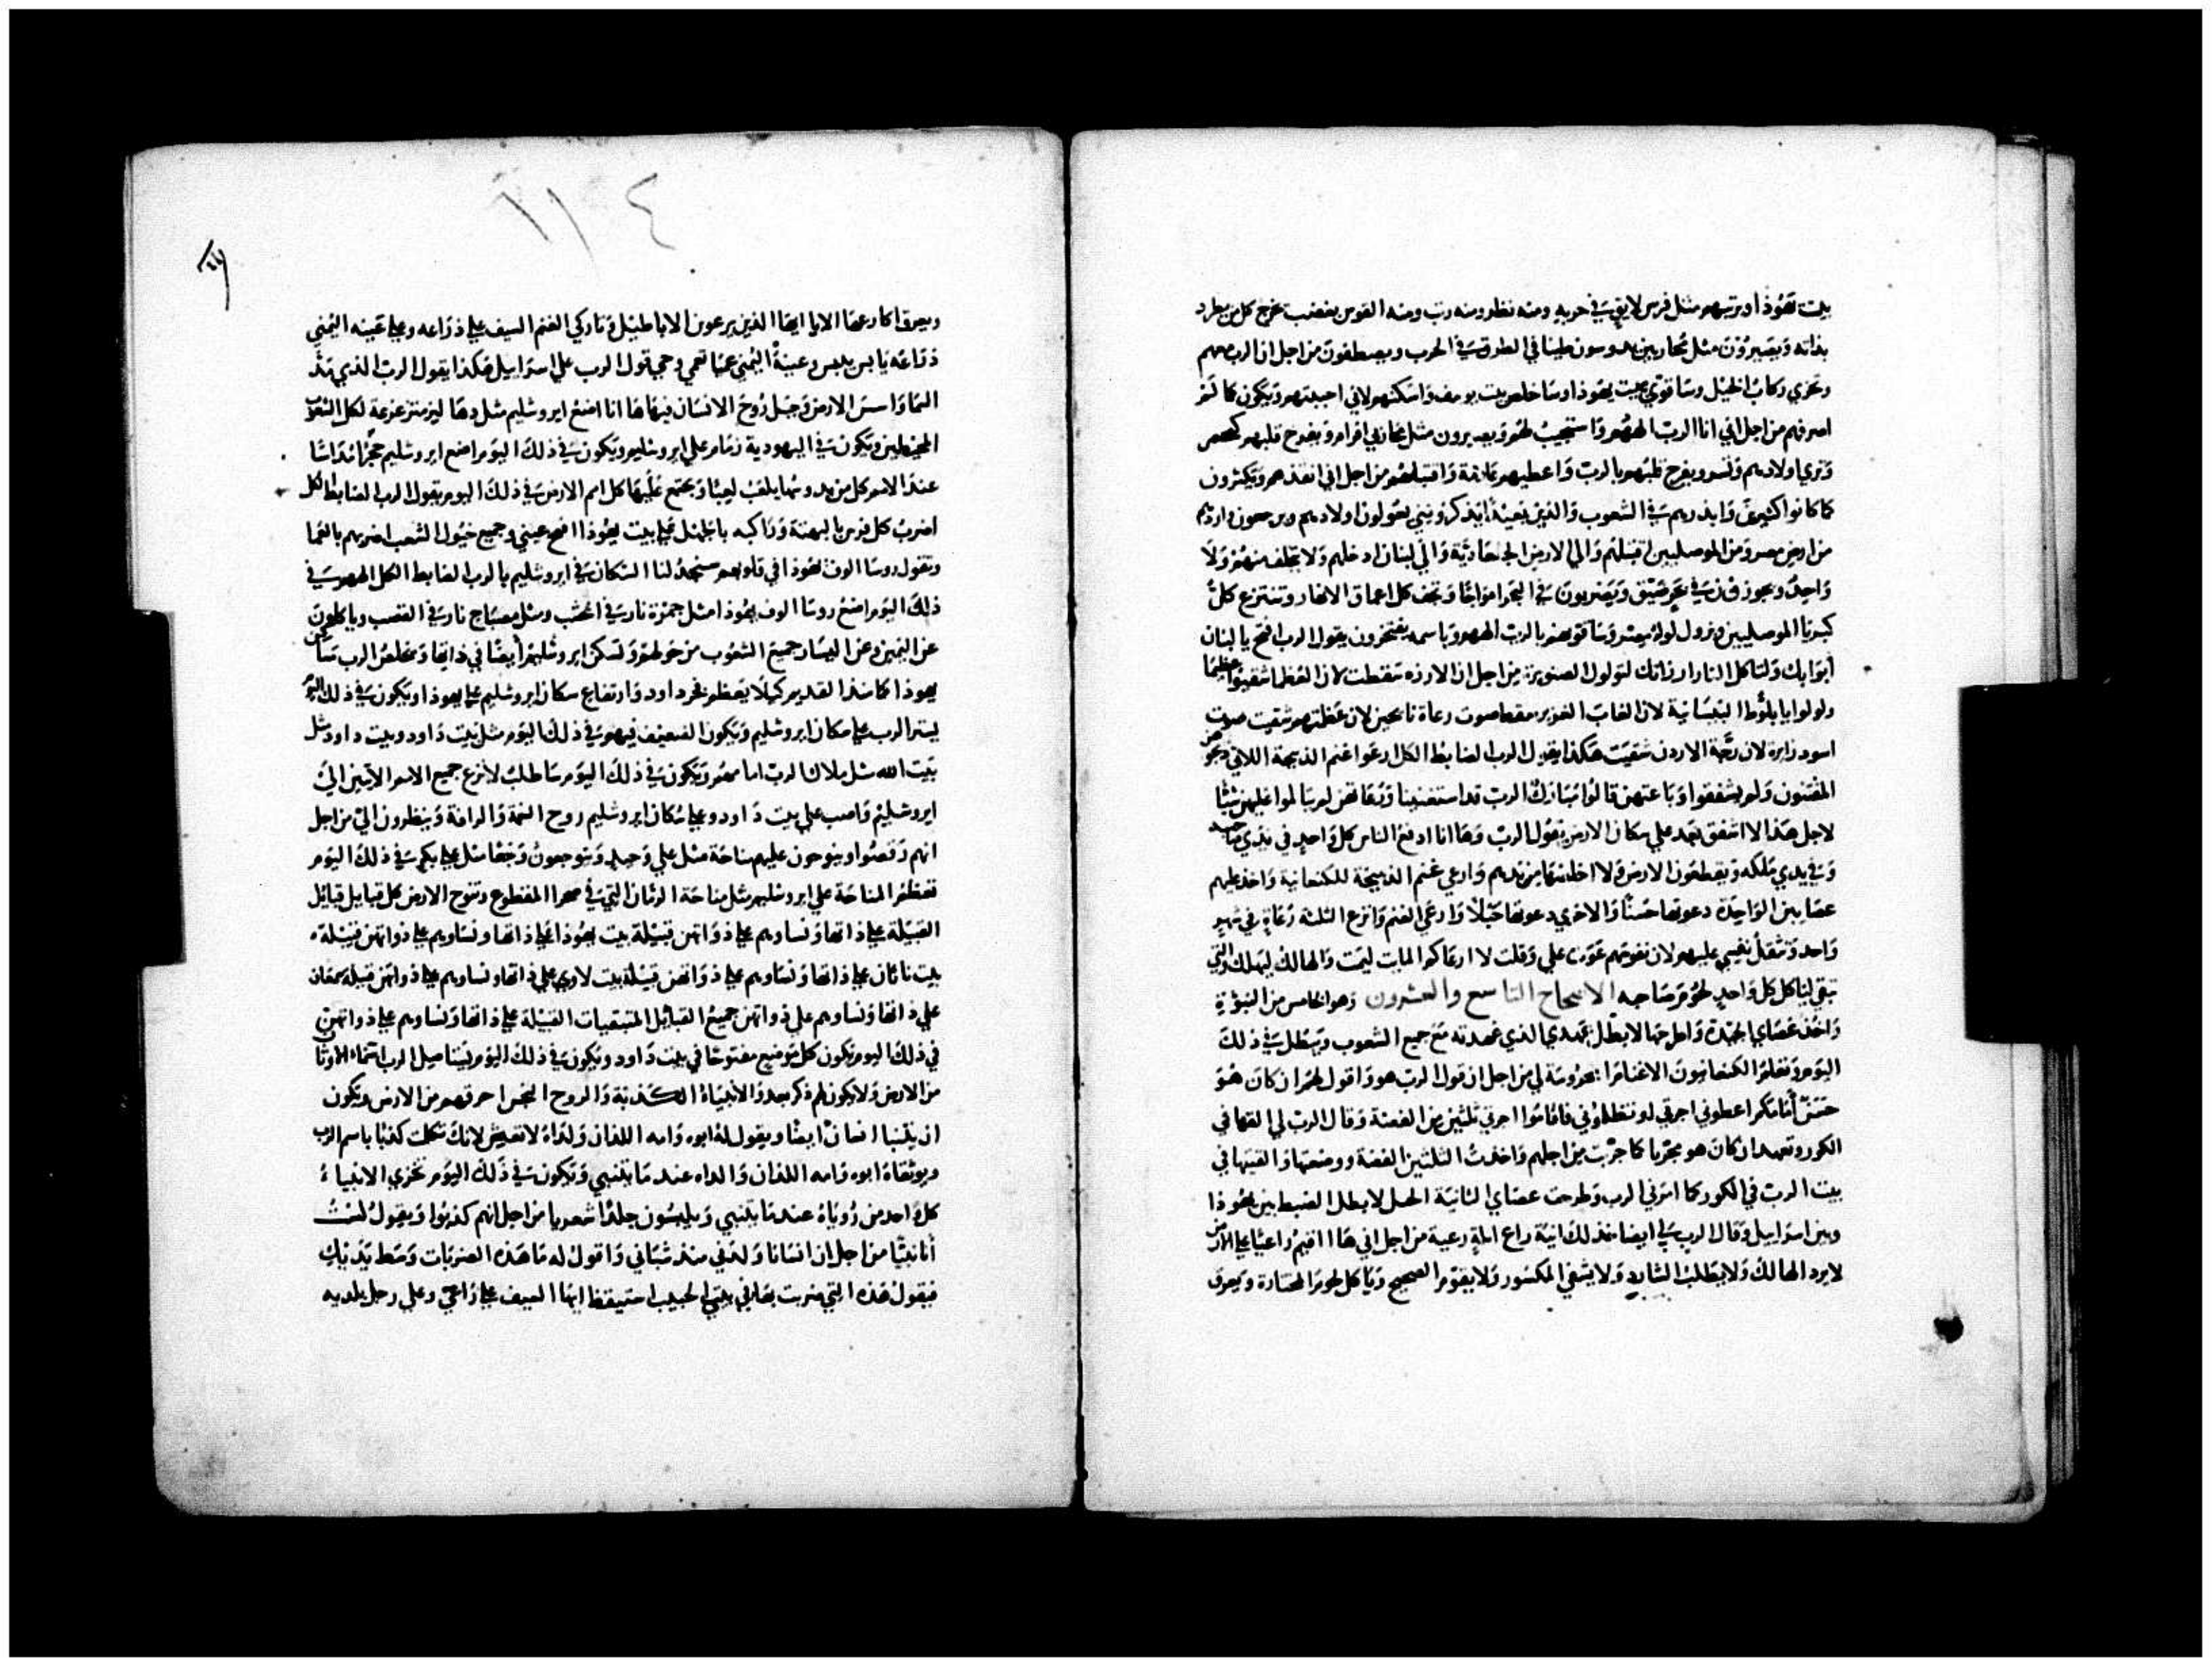 بيت يهوذا ويرتبهم مثل فرس لايق في حربه ومنه نظر ومنه رتب ومنه القوس بغضب يخرج كل من يطرد
بذاته ويصيرون مثل محاربين يدوسون طينا في الطرق في الحرب ويصطفون من اجل ان الرب معهم
وتخزي ركاب الخيل وساقوي بيت يهوذا وساخلص بيت يوسف واسكنهم لاني احببتهم ويكون كما لم
اصرفهم من اجل اني انا الرب الههم واستجيب لهم ويصيرون مثل محاربي افرام ويفرح قلبهم كخمر
وتري اولادهم وتسر ويفرح قلبهم بالرب واعطيهم علامة واقتبلهم من اجل اني انقذهم ويكثرون
كما كانوا كثيرين وابذرهم في الشعوب والذين بعيدا يذكرونني يعولون اولادهم ويرجعون واردهم
من ارض مصر ومن الموصليين اقتبلهم والي الارض الجلعادية والي لبنان ادخلهم ولا يخلف منهم ولا
واحد ويجوزون في بحر ضيق ويضربون في البحر امواجا وتجف كل اعماق الانهار وتنتزع كل
كبريا الموصليين ويزول لواء مصر وساقويهم بالرب الههم وباسمه يفتخرون يقول الرب افتح يا لبنان
ابوابك ولتاكل النار ارزاتك لتولول الصنوبرة من اجل ان الارزه سقطت لان العظما شقيوا عظيما
ولولوا يا بلوط البيسانية لان الغاب الغزير سقط صوت رعاة نايحين لان عظمتهم شقيت صوت
اسود زايرة لان رجة الاردن شقيت هكذا يقول الرب الضابط الكل ارعوا غنم الذبيحة اللاتي ذبحوهن
المقتنون ولم يشفقوا وباعتهن قالوا مبارك الرب قد استغنينا ورعاتهن لم يتالموا عليهن شيئا
لاجل هذا لا اشفق بعد علي سكان الارض يقول الرب وها انا ادفع الناس كل واحد في يدي صاحبه
وفي يدي ملكه ويقطعون الارض ولا اخلصها من يديهم وارعي غنم الذبيحة للكنعانية واخذ عليهم
عصايين الواحدة دعوتها حسنا والاخري دعوتها حبلا وارعي الغنم وانزع الثلثة رعاة في شهر
واحد وتثقل نفسي عليهم لان نفوسهم عوت علي وقلت لا ارعاكم المايت ليمت والهالك ليهلك والتي
تبقي لياكل كل واحد لحوم صاحبه الاصحاح التاسع والعشرون وهو الخامس من النبوة
واخذ عصاي الجيدة واطرحها لابطل عهدي الذي عهدته مع جميع الشعوب ويبطل في ذلك
اليوم وتعلم الكنعانيون الاغنام المحروسة لي من اجل ان قول الرب هو واقول لهم ان كان هو
حسن امامكم اعطوني اجرتي او تظلموني فاقاموا اجرتي ثلثين من الفضة وقال الرب لي القها في
الكور وتعهد ان كان هو مجربا كما جربت من اجلهم واخذت الثلثين الفضة ووضعتها والقيتها في
بيت الرب في الكور كما امرني الرب وطرحت عصاي الثانية الحبل لابطل الضبط بين يهوذا
وبين اسراييل وقال الرب لي ايضا خذ لك انية راع ابلة رعية من اجل اني ها انا اقيم راعيا علي الارض
لا يرد الهالك ولا يطلب الشارد ولا يشفي المكسور ولا يقوم الصحيح وياكل لحوم المختارة ويعرق
١١٤
ويعرق اكارعها الا يا ايها الذين يرعون الاباطيل وتاركي الغنم السيف علي ذراعه وعلي عينه اليمني
ذراعه يابس ييبس وعينه اليمني عما تعمي وحي قول الرب علي اسراييل هكذا يقول الرب الذي مد
السما واسس الارض وجبل روح الانسان فيها ها انا اضع ايروشليم مثل دها ليز متزعزعة لكل الشعوب
المحيطين ويكون في اليهودية زمام علي ايروشليم ويكون في ذلك اليوم اضع ايروشليم حجرا مداسا
عند الامم كل من يدوسها يلعب لعبا ويجتمع عليها كل امم الارض في ذلك اليوم يقول الرب الضابط الكل
اضرب كل فرس بالبهتة وراكبه بالجنل علي بيت يهوذا افتح عيني وجميع خيول الشعب اضربهم بالعما
وتقول روسا الوف يهوذا في قلوبهم ستجد لنا السكان في ايروشليم بالرب الضابط الكل الههم في
ذلك اليوم اضع روسا الوف يهوذا مثل جمرة نار في الخشب ومثل مصباح نار في القصب وياكلون
عن اليمين وعن اليسار جميع الشعوب من حولهم وتسكن ايروشليم ايضا في ذاتها ويخلص الرب مساكن
يهوذا كما منذ القديم كيلا يعظم فخر داود وارتفاع سكان ايروشليم علي يهوذا ويكون في ذلك اليوم
يستر الرب علي سكان ايروشليم ويكون الضعيف فيهم في ذلك اليوم مثل بيت داود وبيت داود مثل
بيت الله مثل ملاك الرب امامهم ويكون في ذلك اليوم ساطلب لانزع جميع الامم الاتين الي
ايروشليم واصب علي بيت داود وعلي سكان ايروشليم روح النعمة والرافة وينظرون الي من اجل
انهم رقصوا وينوحون عليهم مناحة مثل علي وحيد ويتوجعون وجعا مثل علي بكر في ذلك اليوم
تعظم المناحة علي ايروشليم مثل مناحة الرمان التي في صحرا المقطوع وتنوح الارض كل قبايل قبايل
القبيلة علي ذاتها ونساوهم علي ذواتهن قبيلة بيت يهوذا علي ذاتها ونساوهم علي ذواتهن قبيلة
بيت ناثان علي ذاتها ونساوهم علي ذواتهن قبيلة بيت لاوي علي ذاتها ونساوهم علي ذواتهن قبيلة سمعان
علي ذاتها ونساوهم علي ذواتهن جميع القبايل المتبقيات القبيلة علي ذاتها ونساوهم علي ذواتهن
في ذلك اليوم يكون كل موضع مفتوحا في بيت داود ويكون في ذلك اليوم يستاصل الرب اسماء الاوثان
من الارض ولا يكون لهم ذكر بعد والانبياء الكذبة والروح النجس احرقهم من الارض ويكون
ان يتنبا انسان ايضا ويقول له ابوه وامه اللذان ولداه لا تعيش لانك تكلمت كذبا باسم الرب
ويوثقاه ابوه وامه اللذان والداه عند ما يتنبي ويكون في ذلك اليوم تخزي الانبياء
كل واحد من روياه عند ما يتنبي ويلبسون جلدا شعريا من اجل انهم كذبوا ويقول لست
انا نبيا من اجل ان انسانا ولدني منذ شبابي واقول له ما هذه الضربات وسط يديك
فيقول هذه التي ضربت بها في بيتي الحبيب استيقظ ايها السيف علي راعي وعلي رجل بلديه